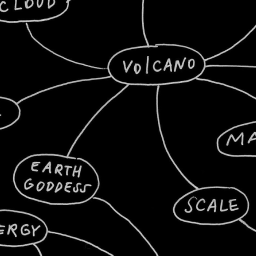 CLOUD
VOLCANO
MA
EARTH
GODDESS
SCALE
ERGY